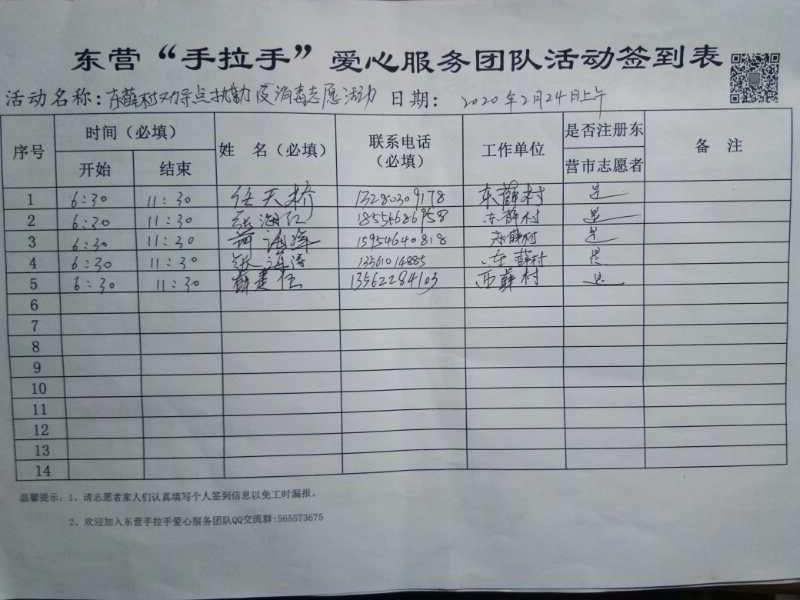 东营“手拉手”爱心服务团队活动签到表
活动名称：东薛村劝导点执勤及消毒志愿活动 日期：2020年2月24日上午
序号 时间（必填） 姓 名（必填） 联系电话（必填） 工作单位 是否注册东营市志愿者 备 注
开始 结束
1 6:30 11:30 任天桥 13280309178 东薛村 是
2 6:30 11:30 张海红 18554686958 东薛村 是
3 6:30 11:30 15954640818 东薛村 是
4 6:30 11:30 张海涛 13561014885 东薛村 是
5 6:30 11:30 薛建伍 13562284103 西薛村 是
6
7
8
9
10
11
12
13
14
温馨提示：1、请志愿者家人们认真填写个人签到信息以免工时漏报。
2、欢迎加入东营手拉手爱心服务团队QQ交流群:565573675